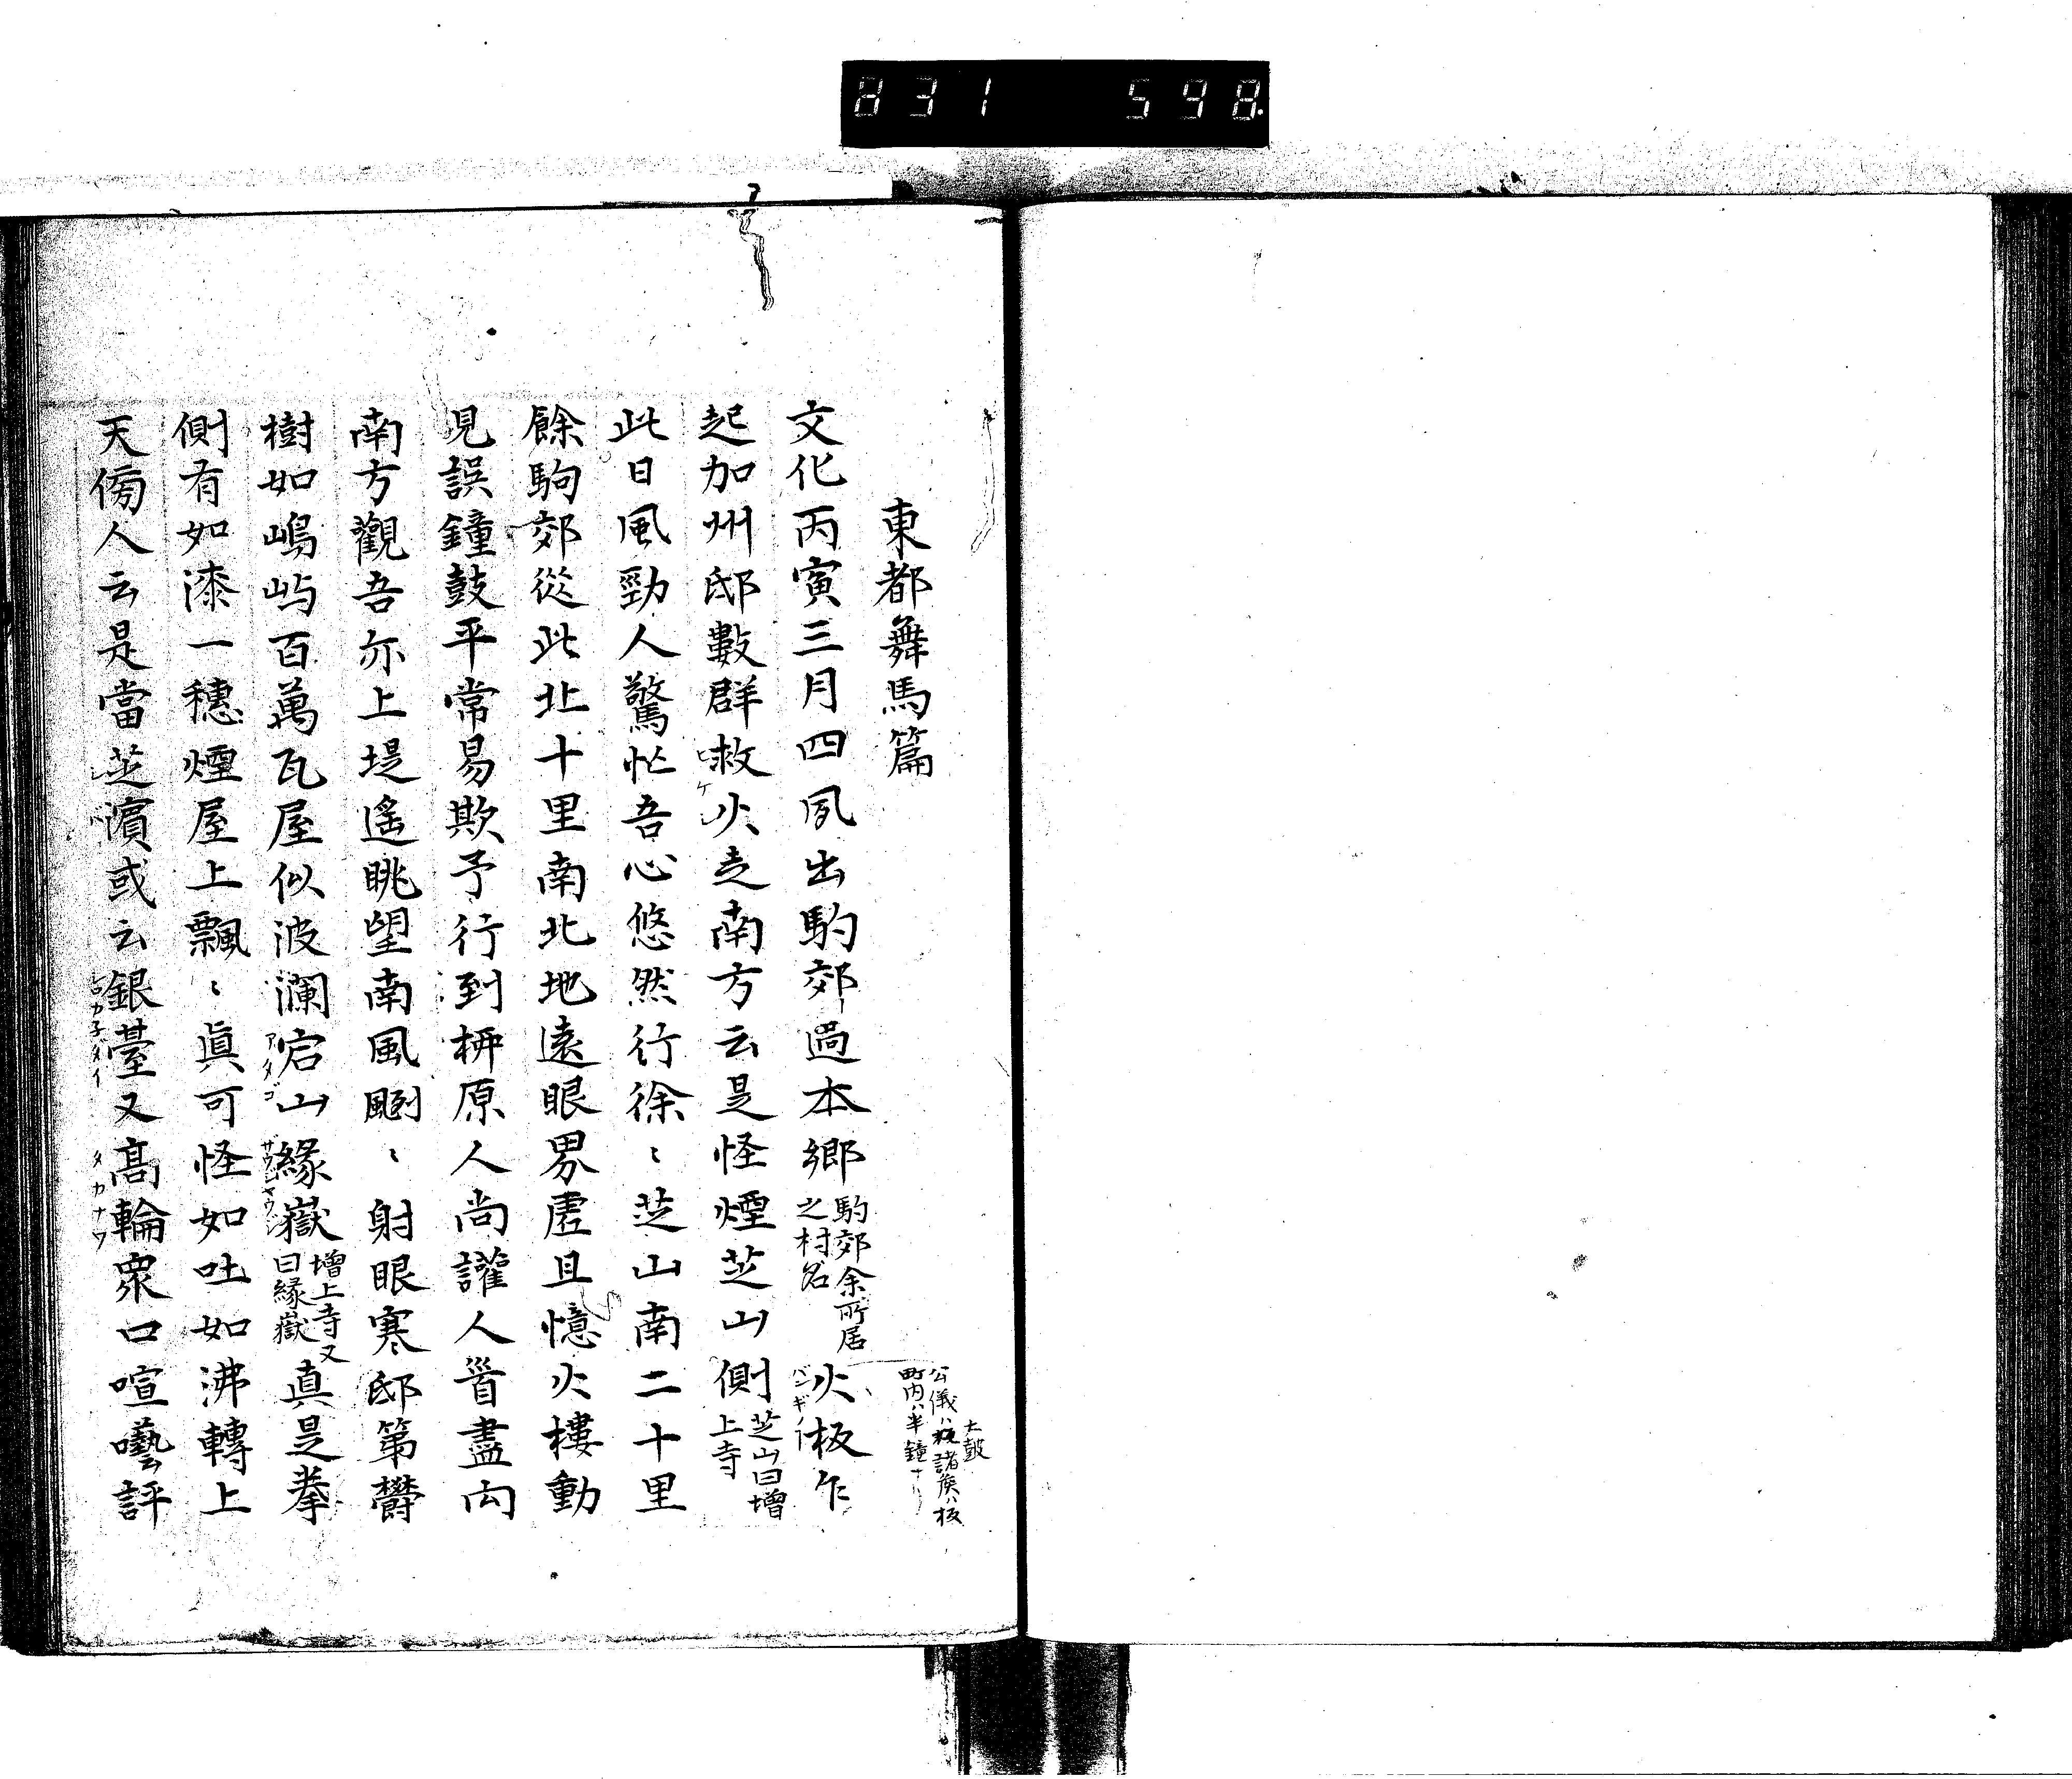 831 598
東都舞馬篇
太鼓
公儀ハ板諸矦ハ板
町内ハ半鐘ナリ
文化丙寅三月四夙出駒郊過本鄉駒郊余所居之村名火板乍
バンギ
起加州邸數群救火走南方云是怪煙芝山側芝山曰增上寺
此日風勁人驚忙吾心悠然行徐〻芝山南二十里
餘駒郊從此北十里南北地遠眼界虛且憶火樓動
見誤鐘鼓平常易欺予行到栁原人尚讙人䭫盡向
南方觀吾亦上堤遙眺望南風颲〻射眼寒邸第欝
樹如嶋屿百萬瓦屋似波瀾宕山緣嶽增上寺又曰緣嶽真是拳
アタゴ
側有如漆一穗煙屋上飄〻眞可怪如吐如沸轉上
天傍人云是當芝濵或云銀臺又髙輪衆口喧囈評
シロカ子ダイ タカナワ